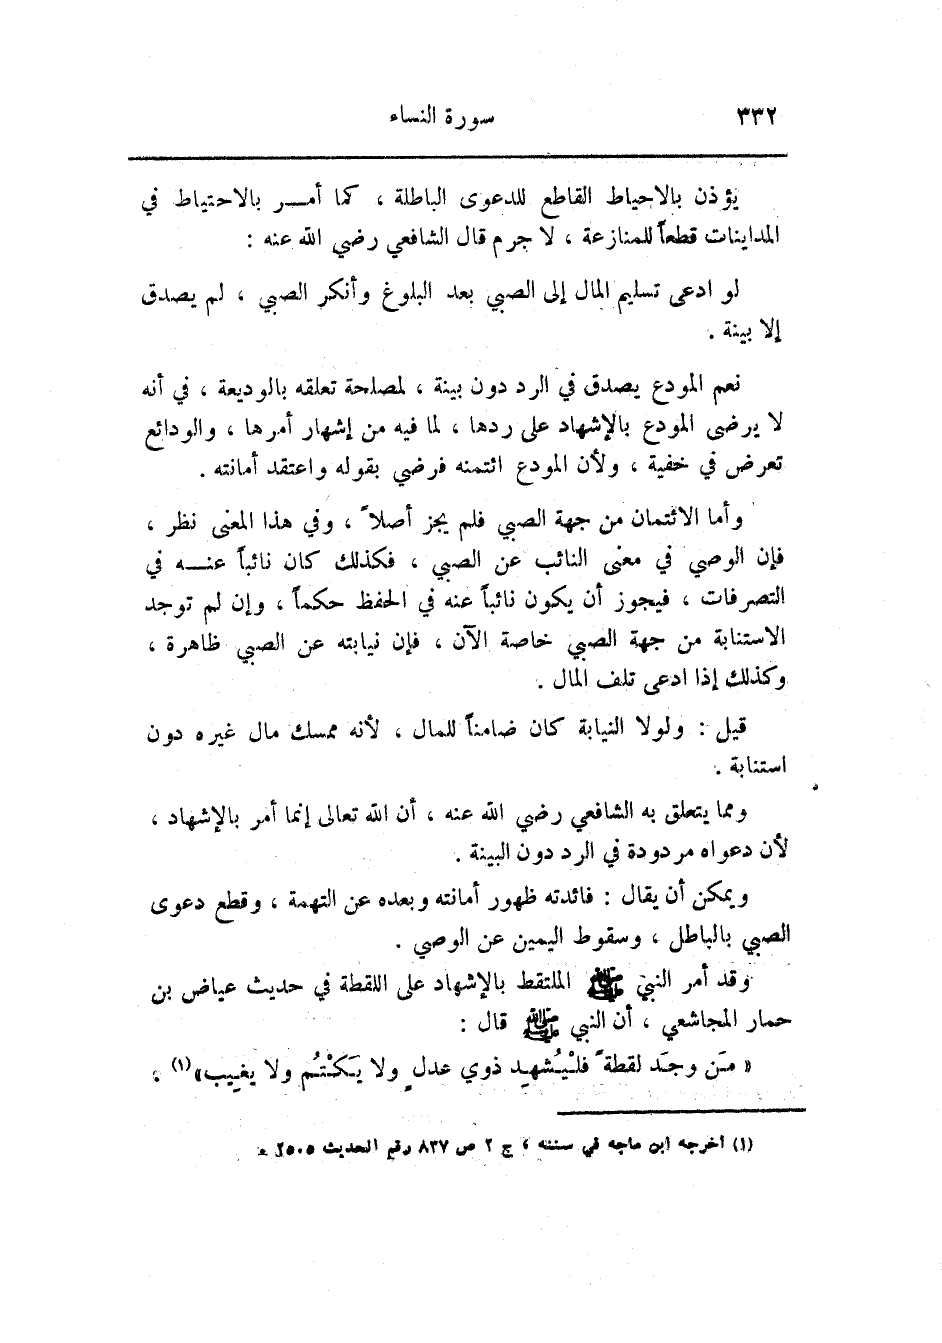 ٣٣٢ سورة النساء
يؤذن بالاحياط القاطع للدعوى الباطلة ، كما أمــر بالاحتياط في
المداينات قطعاً للمنازعة ، لا جرم قال الشافعي رضي الله عنه :
لو ادعى تسليم المال إلى الصبي بعد البلوغ وأنكر الصبي ، لم يصدق
إلا بينة .
نعم المودع يصدق في الرد دون بينة ، لمصلحة تعلقه بالوديعة ، في أنه
لا يرضى المودع بالإشهاد على ردها ، لما فيه من إشهار أمرها ، والودائع
تعرض في خفية ، ولأن المودع ائتمنه فرضي بقوله واعتقد أمانته .
وأما الائتمان من جهة الصبي فلم يجز أصلاً ، وفي هذا المعنى نظر ،
فإن الوصي في معنى النائب عن الصبي ، فكذلك كان نائباً عنــه في
التصرفات ، فيجوز أن يكون نائباً عنه في الحفظ حكماً ، وإن لم توجد
الاستنابة من جهة الصبي خاصة الآن ، فإن نيابته عن الصبي ظاهرة ،
وكذلك إذا ادعى تلف المال .
قيل : ولولا النيابة كان ضامناً للمال ، لأنه ممسك مال غيره دون
استنابة .
ومما يتعلق به الشافعي رضي الله عنه ، أن الله تعالى إنما أمر بالإشهاد ،
لأن دعواه مردودة في الرد دون البينة .
ويمكن أن يقال : فائدته ظهور أمانته وبعده عن التهمة ، وقطع دعوى
الصبي بالباطل ، وسقوط اليمين عن الوصي .
وقد أمر النبي ﷺ الملتقط بالإشهاد على اللقطة في حديث عياض بن
حمار المجاشعي ، أن النبي ﷺ قال :
« مَن وجَد لقطةً فلْيُشهِد ذوي عدلٍ ولا يَكْتُم ولا يغيب»(١) .
(١) أخرجه ابن ماجه في سننه ، ج ٢ ص ٨٣٧ رقم الحديث ٢٥٠٥ .